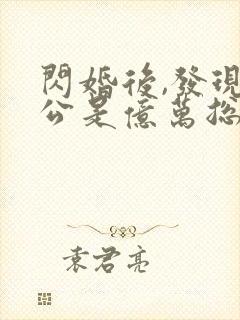 閃婚後,發現
公是億萬總
袁君亮